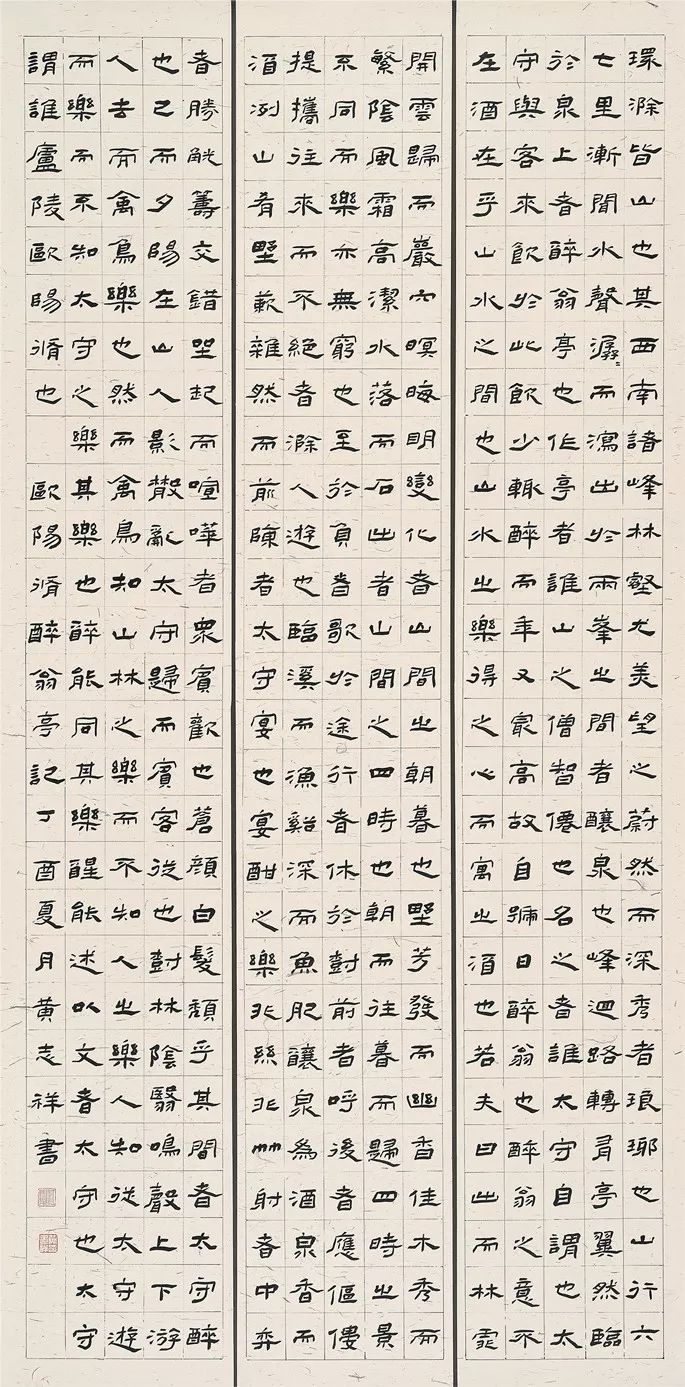 環滁皆山也其西南諸峰林壑尤美望之蔚然而深秀者琅琊也山行六
七里漸聞水聲潺々而瀉出於兩峯之間者釀泉也峰迴路轉有亭翼然臨
於泉上者醉翁亭也作亭者誰山之僧智僊也名之者誰太守自謂也太
守與客來飲於此飲少輒醉而年又最高故自號曰醉翁也醉翁之意不
在酒在乎山水之間也山水之樂得之心而寓之酒也若夫日出而林霏
開雲歸而巖穴暝晦明變化者山間之朝暮也野芳發而幽香佳木秀而
繁陰風霜高潔水落而石出者山間之四時也朝而往暮而歸四時之景
不同而樂亦無窮也至於負者歌於途行者休於樹前者呼後者應傴僂
提攜往來而不絕者滁人遊也臨溪而漁谿深而魚肥釀泉為酒泉香而
酒洌山肴野蔌雜然而前陳者太守宴也宴酣之樂非絲非竹射者中弈
者勝觥籌交錯坐起而喧嘩者眾賓歡也蒼顏白髮頹乎其間者太守醉
也已而夕陽在山人影散亂太守歸而賓客從也樹林陰翳鳴聲上下游
人去而禽鳥樂也然而禽鳥知山林之樂而不知人之樂人知從太守遊
而樂而不知太守之樂其樂也醉能同其樂醒能述以文者太守也太守
謂誰廬陵歐陽脩也 歐陽脩醉翁亭記丁酉夏月黃志祥書